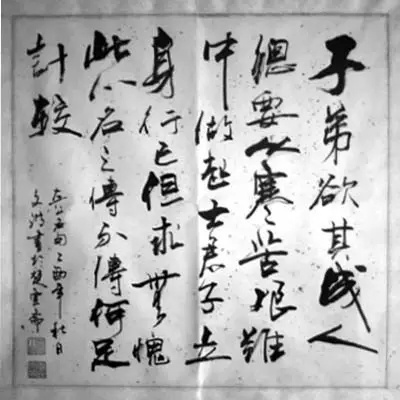 子弟欲其成人
總要从寒苦艱難
中做起士君子立
身行己但求無愧
此心名之傳不傳何足
計較
乙酉年秋日
文書於楚雲齋